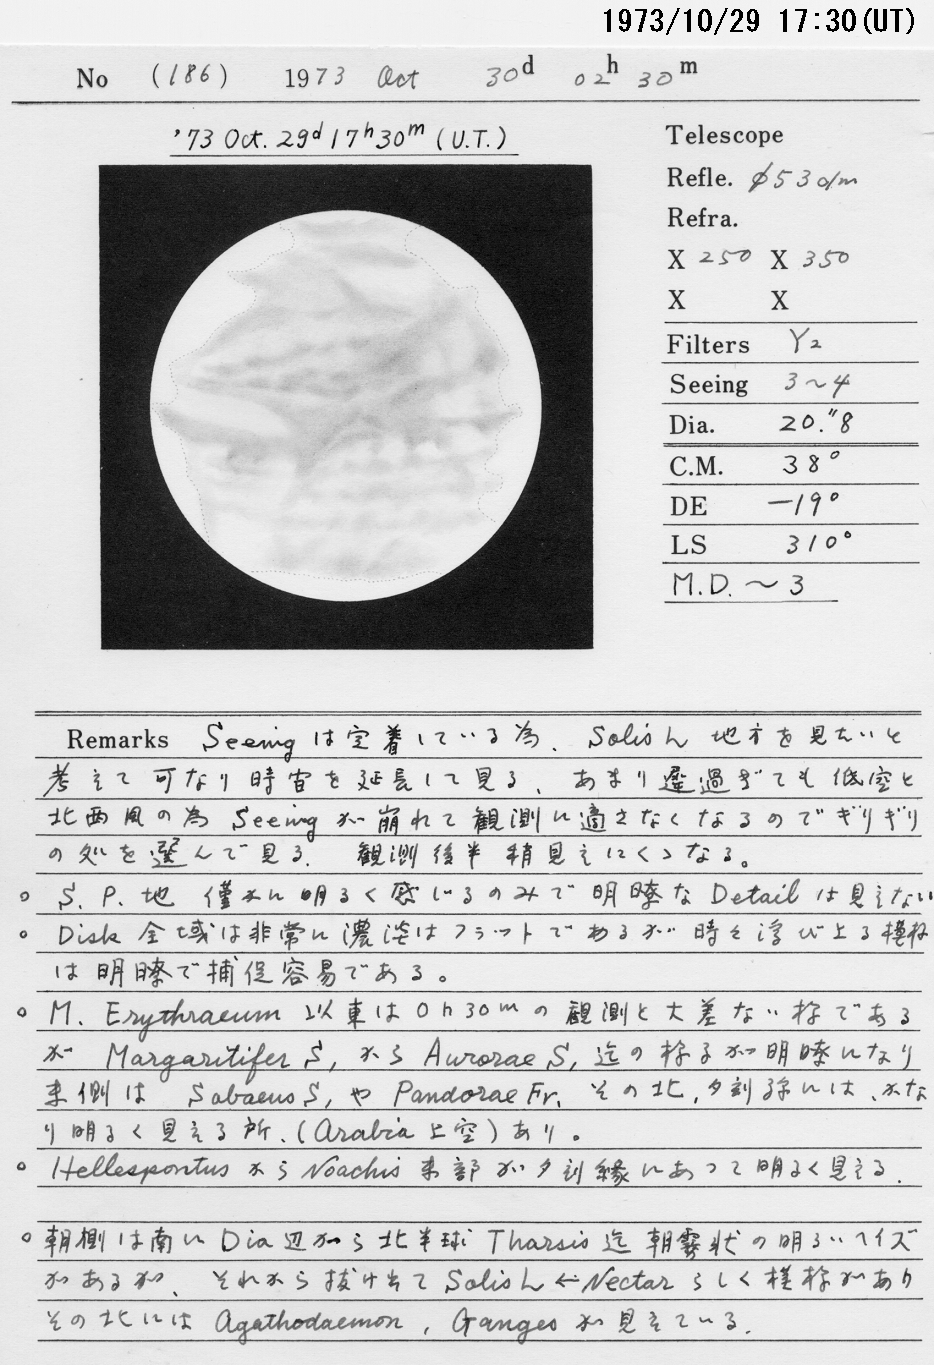 1973/10/29 17:30(UT)
No (186) 1973 Oct 30d 02h 30m
'73 Oct. 29d 17h30m (U.T.)
Telescope
Refle. φ53c/m
Refra.
X 250 X 350
X X
Filters Y2
Seeing 3~4
Dia. 20."8
C.M. 38°
DE -19°
LS 310°
M.D. ~ 3
Remarks Seeingは定着している為、Solis L 地方を見たいと
考えて可なり時宙を延長して見る、あまり遅過ぎても低空と
北西風の為 Seeingが崩れて観測に適さなくなるのでぎりぎり
の処を選んで見る. 観測後半稍見えにくくなる。
○ S.P.地 僅かに明るく感じるのみで明瞭な Detail は見えない
○ Disk 全域は非常に濃淡はフラットであるが時々浮び上る模様
は明瞭で捕促容易である。
○ M. Erythraeum 以東は 0h30m の観測と大差ない様である
が Margaritifer S, から Aurorae S, 迄の様子が明瞭になり
東側は Sabaeus S, や Pandorae Fr. その北, 夕刻縁には、かな
り明るく見える所、(Arabia 上空) あり。
○ Hellespontus から Noachis 東部が夕刻縁にあって明るく見える.
○ 朝側は南い Dia 辺から北半球 Tharsis 迄朝霧状の明るいヘイズ
があるが、それから抜け出て Solis L ← Nectar らしく模様があり
その北には Agathodaemon, Ganges が見えている.